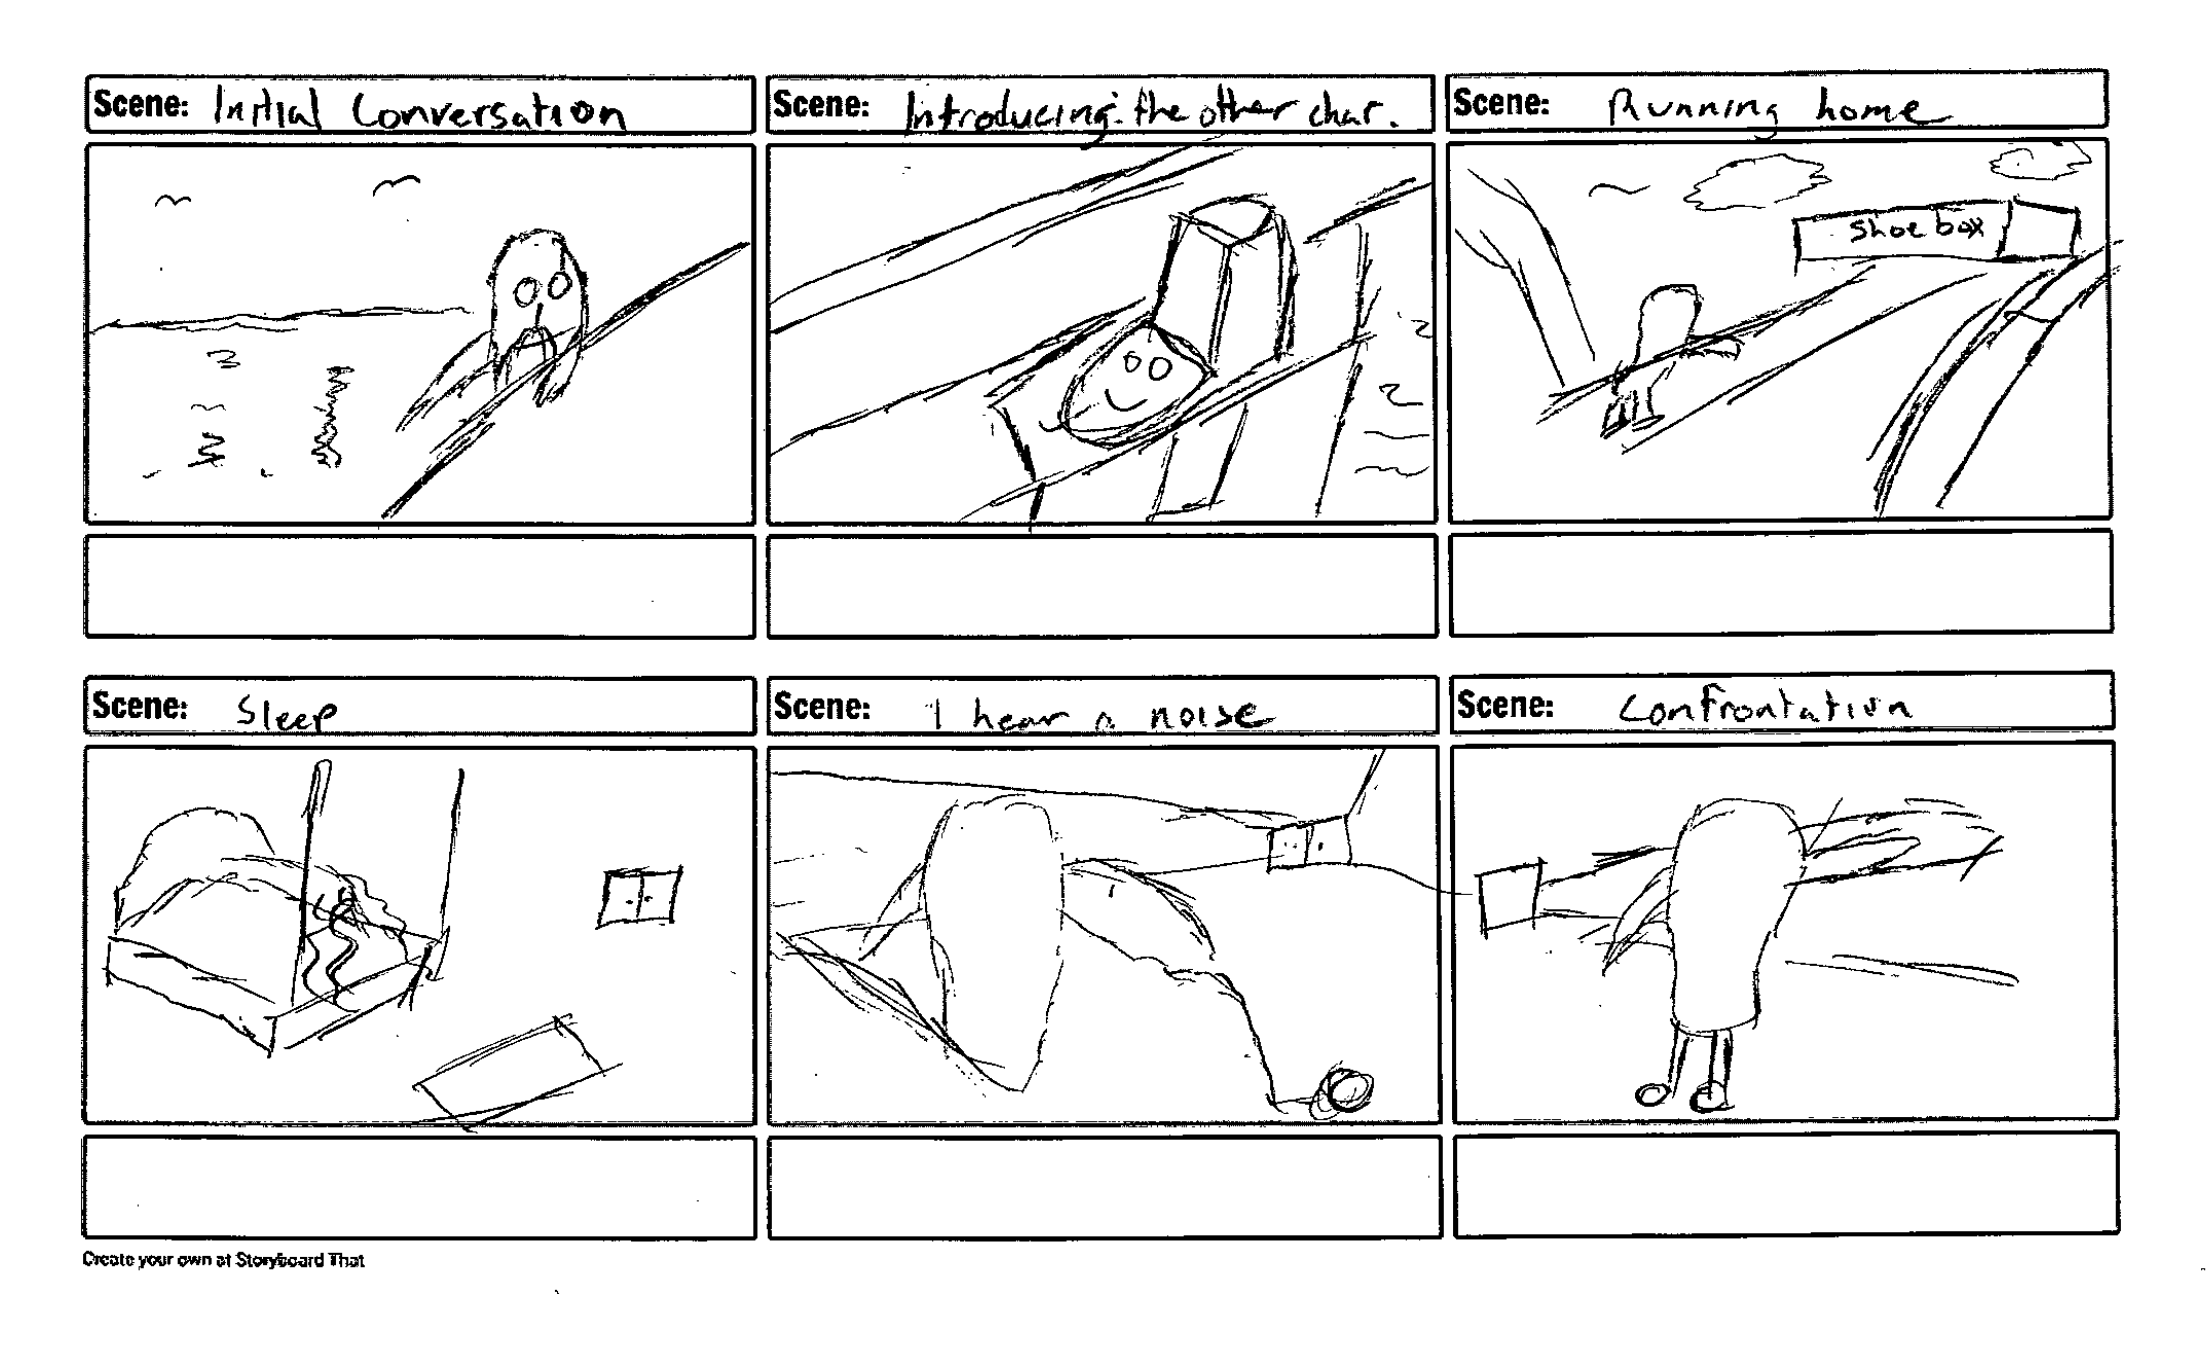 Scene: Initial Conversation
Scene: Introducing: the other char.
Scene: Running home
shoe box
Scene: Sleep
Scene: I hear a noise
Scene: Confrontation
Create your own at Storyboard That